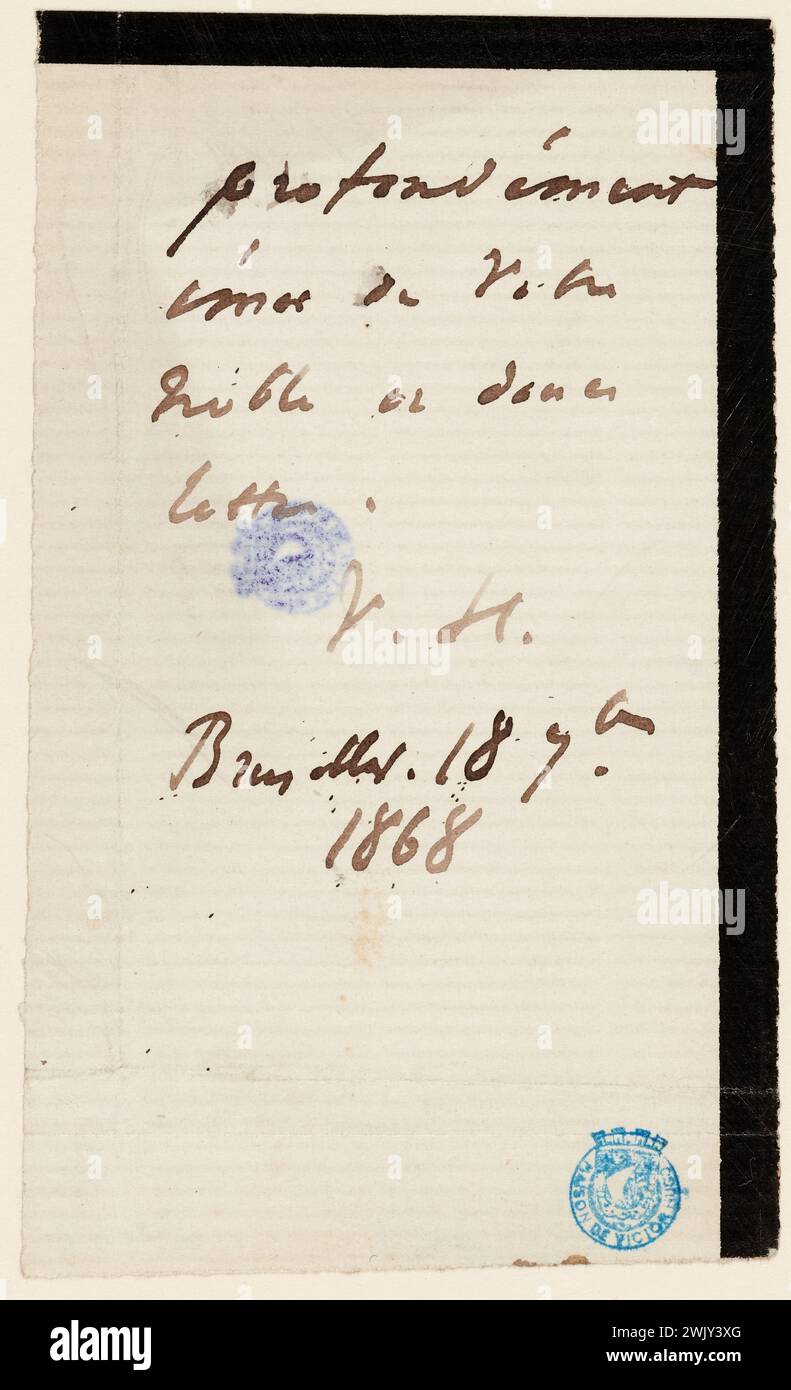 profondément
émue de Votre
noble et douce
lettre.
V. H.
Bruxelles. 18 7bre.
1868
MAISON DE VICTOR HUGO
alamy
Image ID: 2WJY3XG
www.alamy.com